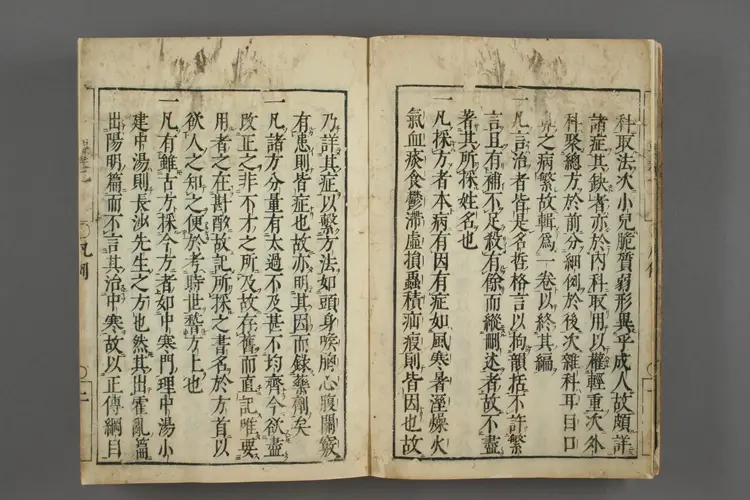 科取法次小兒脆質弱形異乎成人故頗詳
諸症其餘者亦於內科取用以權輕重次外
科聚總方於前分細例於後次雜科耳目口
鼻之病繁故輯爲一卷以終其編
一凡言治者皆是名哲格言以拘韻括不許繁
言且有補不足殺有餘而縱刪述者故不盡
著其所採姓名也
一凡採方者本病有因有症如風寒暑溼燥火
氣血痰食鬱滯虛損蟲積疝瘕則皆因也故
乃詳其症以繫方法如頭身喉胸心腹關竅
有患則皆症也故亦明其因而錄藥劑矣
一凡諸方分量有太過不及甚不均齊今欲盡
改正之非不才之所及故存舊而直記唯要
用者之在斟酌故記所採之書名於方首以
欲人之知之便於考時世稽方上也
一凡有雖古方採今方者如中寒門理中湯小
建中湯則長沙先生之方也然其出霍亂篇
出陽明篇而不言其治中寒故以正傳綱目
凡例
二